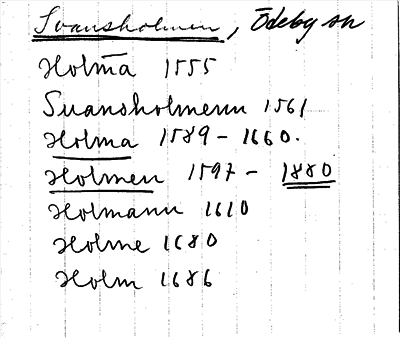 Svansholmen, Ödeby sn
Holmā 1555
Suansholmenn 1561
Holma 1589 - 1660.
Holmen 1597 - 1880
Holmann 1610
Holme 1680
Holm 1686